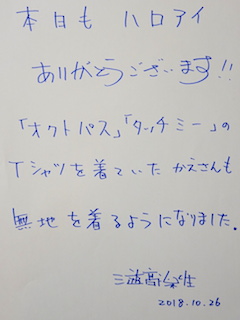 本日も ハロアイ
ありがとうございます!!
「オクトパス」「タッチミー」の
Tシャツを着ていた かえさんも
無地を着るようになりました.
2018.10.26